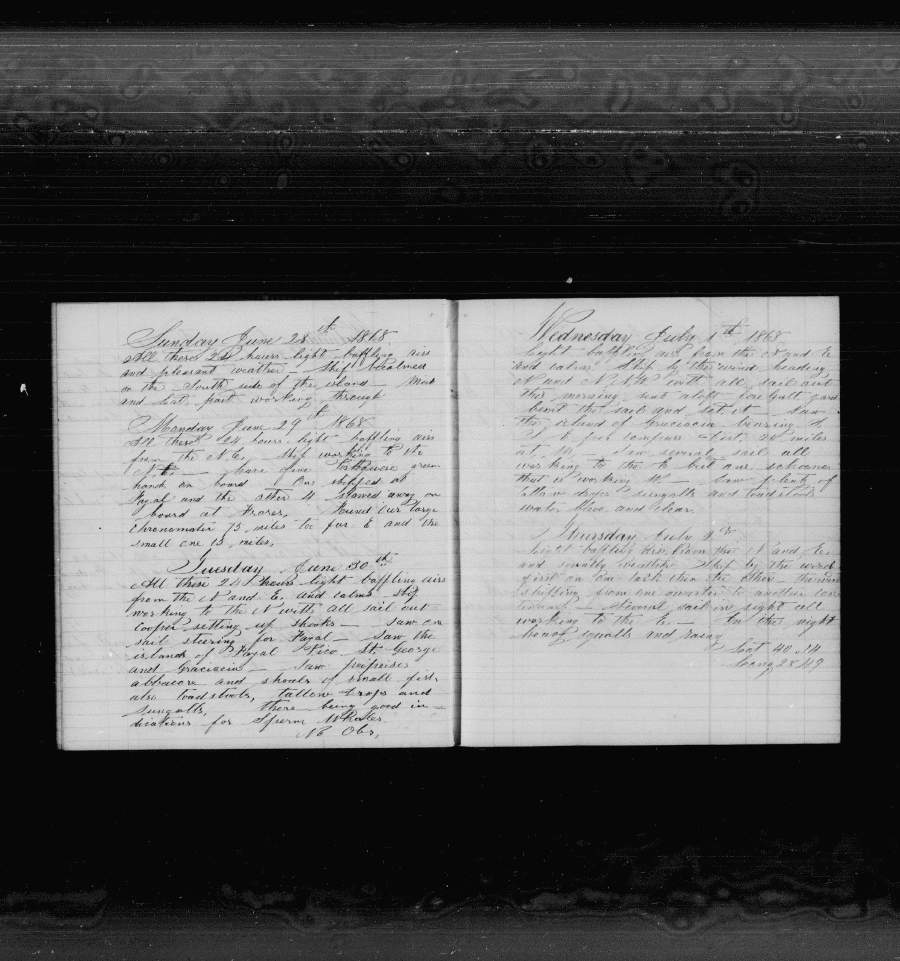 Sunday June 28th 1868
All these 24 hours light baffling airs
and pleasant weather — Ship becalmed
on the South side of the island — Mid
and Lat. part working through
Monday June 29th 1868
All these 24 hours light baffling airs
from the N.E. Ship working to the
N.E. — have five Portuguese green
hands on board One shipped at
Fayal and the other 4 stowed away on
board at Flores, Found our large
Chronometer 75 miles too far E and the
small one 15 miles,
Tuesday June 30th
All these 24 hours light baffling airs
from the N and E. and calms ship
working to the N with all sail out
cooper setting up shooks — Saw one
sail steering for Fayal — Saw the
islands of Fayal Pico St. George
and Graciacia — Saw porpoises
albbacore and shoals of small fish
also toadstools, tallow drops and
sungalls, these being good in-
dications for Sperm Whales
No Obs,
Wednesday July 1th 1868
Light baffling airs from the N and E
and calms. Ship by the wind heading
N and N.N.W with all sail out
this morning sent aloft fore Gall yard
bent the sail and set it — Saw
the island of Graciacia bearing
by compass dist. 20 miles
at M, Saw several sail all
working to the E but one schooner
that is working W — Saw plenty of
tallow drops sungalls and toadstools
water blue and clear.
Thursday July 2
Light baffling airs from the N and E.
and squally weather Ship by the wind
first on one tack then the other — the wind
shifting from one quarter to another
— Several sail in sight all
working to the E — In the night
heavy squalls and rainy
Lat 40.24
Long 28.49